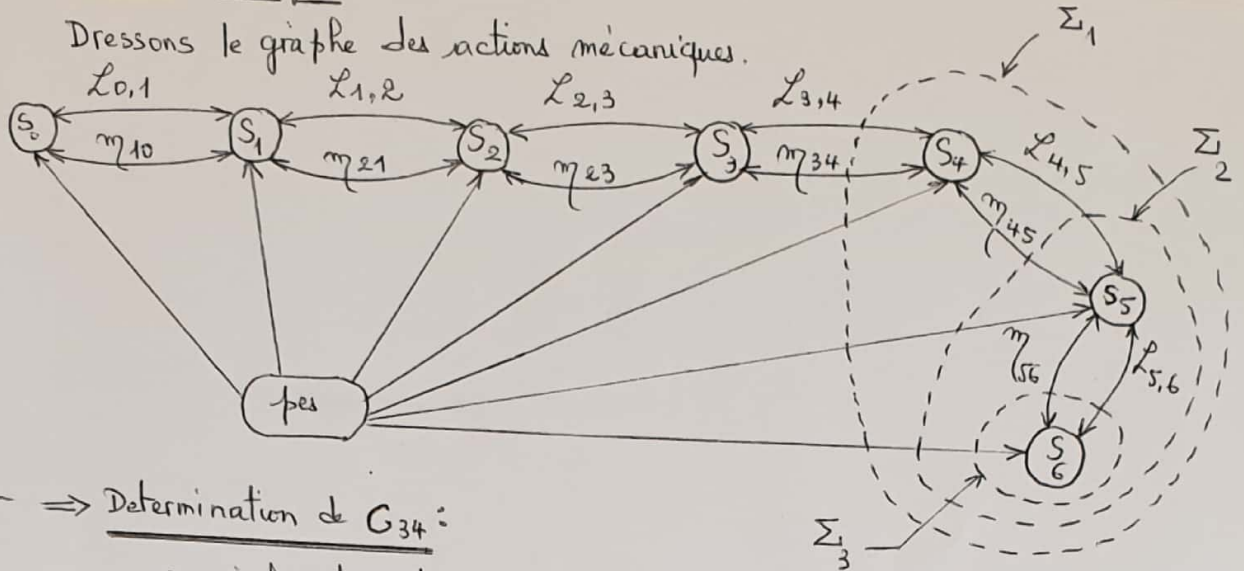 Dressons le graphe des actions mécaniques.
Σ1
L0,1 L1,2 L2,3 L3,4
S0 S1 S2 S3 S4 L4,5 Σ2
m10 m21 m23 m34 m45
S5
m56 L5,6
pes
S6
=> Determination de C34 :
Σ3